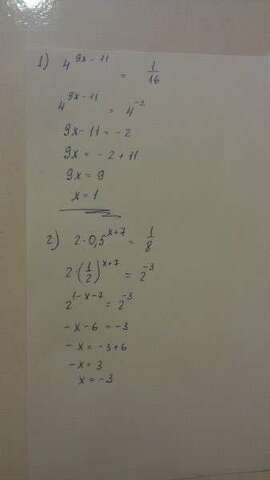 1) 4^(9x-11) = 1/16
4^(9x-11) = 4^(-2)
9x-11 = -2
9x = -2+11
9x = 9
x = 1
2) 2·0,5^(x+7) = 1/8
2·(1/2)^(x+7) = 2^(-3)
2^(1-x-7) = 2^(-3)
-x-6 = -3
-x = -3+6
-x = 3
x = -3